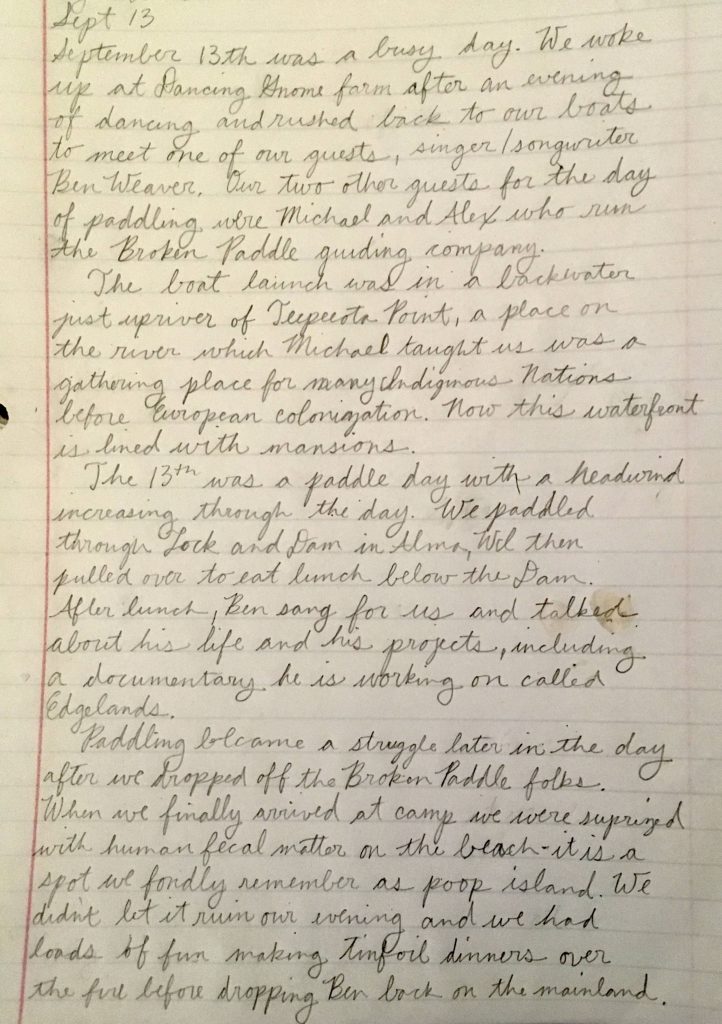 Sept 13
September 13th was a busy day. We woke
up at Dancing Gnome farm after an evening
of dancing and rushed back to our boats
to meet one of our guests, singer/songwriter
Ben Weaver. Our two other guests for the day
of paddling were Michael and Alex who run
the Broken Paddle guiding company.
The boat launch was in a backwater
just upriver of Teepeeota Point, a place on
the river which Michael taught us was a
gathering place for many Indiginous Nations
before European colonization. Now this waterfront
is lined with mansions.
The 13th was a paddle day with a headwind
increasing through the day. We paddled
through Lock and Dam in Alma, WI then
pulled over to eat lunch below the Dam.
After lunch, Ben sang for us and talked
about his life and his projects, including
a documentary he is working on called
Edgelands.
Paddling became a struggle later in the day
after we dropped off the Broken Paddle folks.
When we finally arrived at camp we were suprized
with human fecal matter on the beach - it is a
spot we fondly remember as poop island. We
didn't let it ruin our evening and we had
loads of fun making tinfoil dinners over
the fire before dropping Ben back on the mainland.